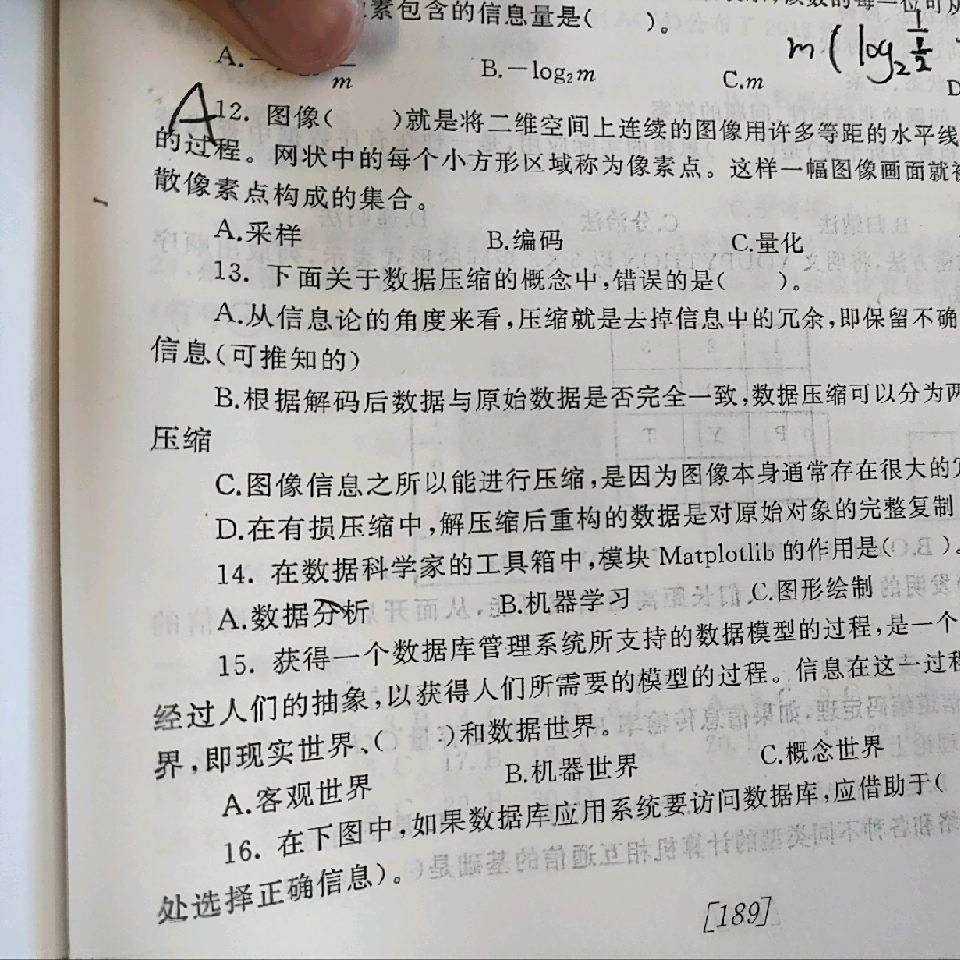 素包含的信息量是(　　)。
A.
m
B.－log₂m
C.m
m(log₂
A
12. 图像(　　)就是将二维空间上连续的图像用许多等距的水平线
的过程。网状中的每个小方形区域称为像素点。这样一幅图像画面就
散像素点构成的集合。
A.采样　　B.编码　　C.量化
13. 下面关于数据压缩的概念中,错误的是(　　)。
A.从信息论的角度来看,压缩就是去掉信息中的冗余,即保留不确
信息(可推知的)
B.根据解码后数据与原始数据是否完全一致,数据压缩可以分为两
压缩
C.图像信息之所以能进行压缩,是因为图像本身通常存在很大的
D.在有损压缩中,解压缩后重构的数据是对原始对象的完整复制
14. 在数据科学家的工具箱中,模块 Matplotlib 的作用是(　　)。
A.数据分析　　B.机器学习　　C.图形绘制
15. 获得一个数据库管理系统所支持的数据模型的过程,是一个
经过人们的抽象,以获得人们所需要的模型的过程。信息在这一过程
界,即现实世界、(　　)和数据世界。
A.客观世界　　B.机器世界　　C.概念世界
16. 在下图中,如果数据库应用系统要访问数据库,应借助于(
处选择正确信息)。
[189]